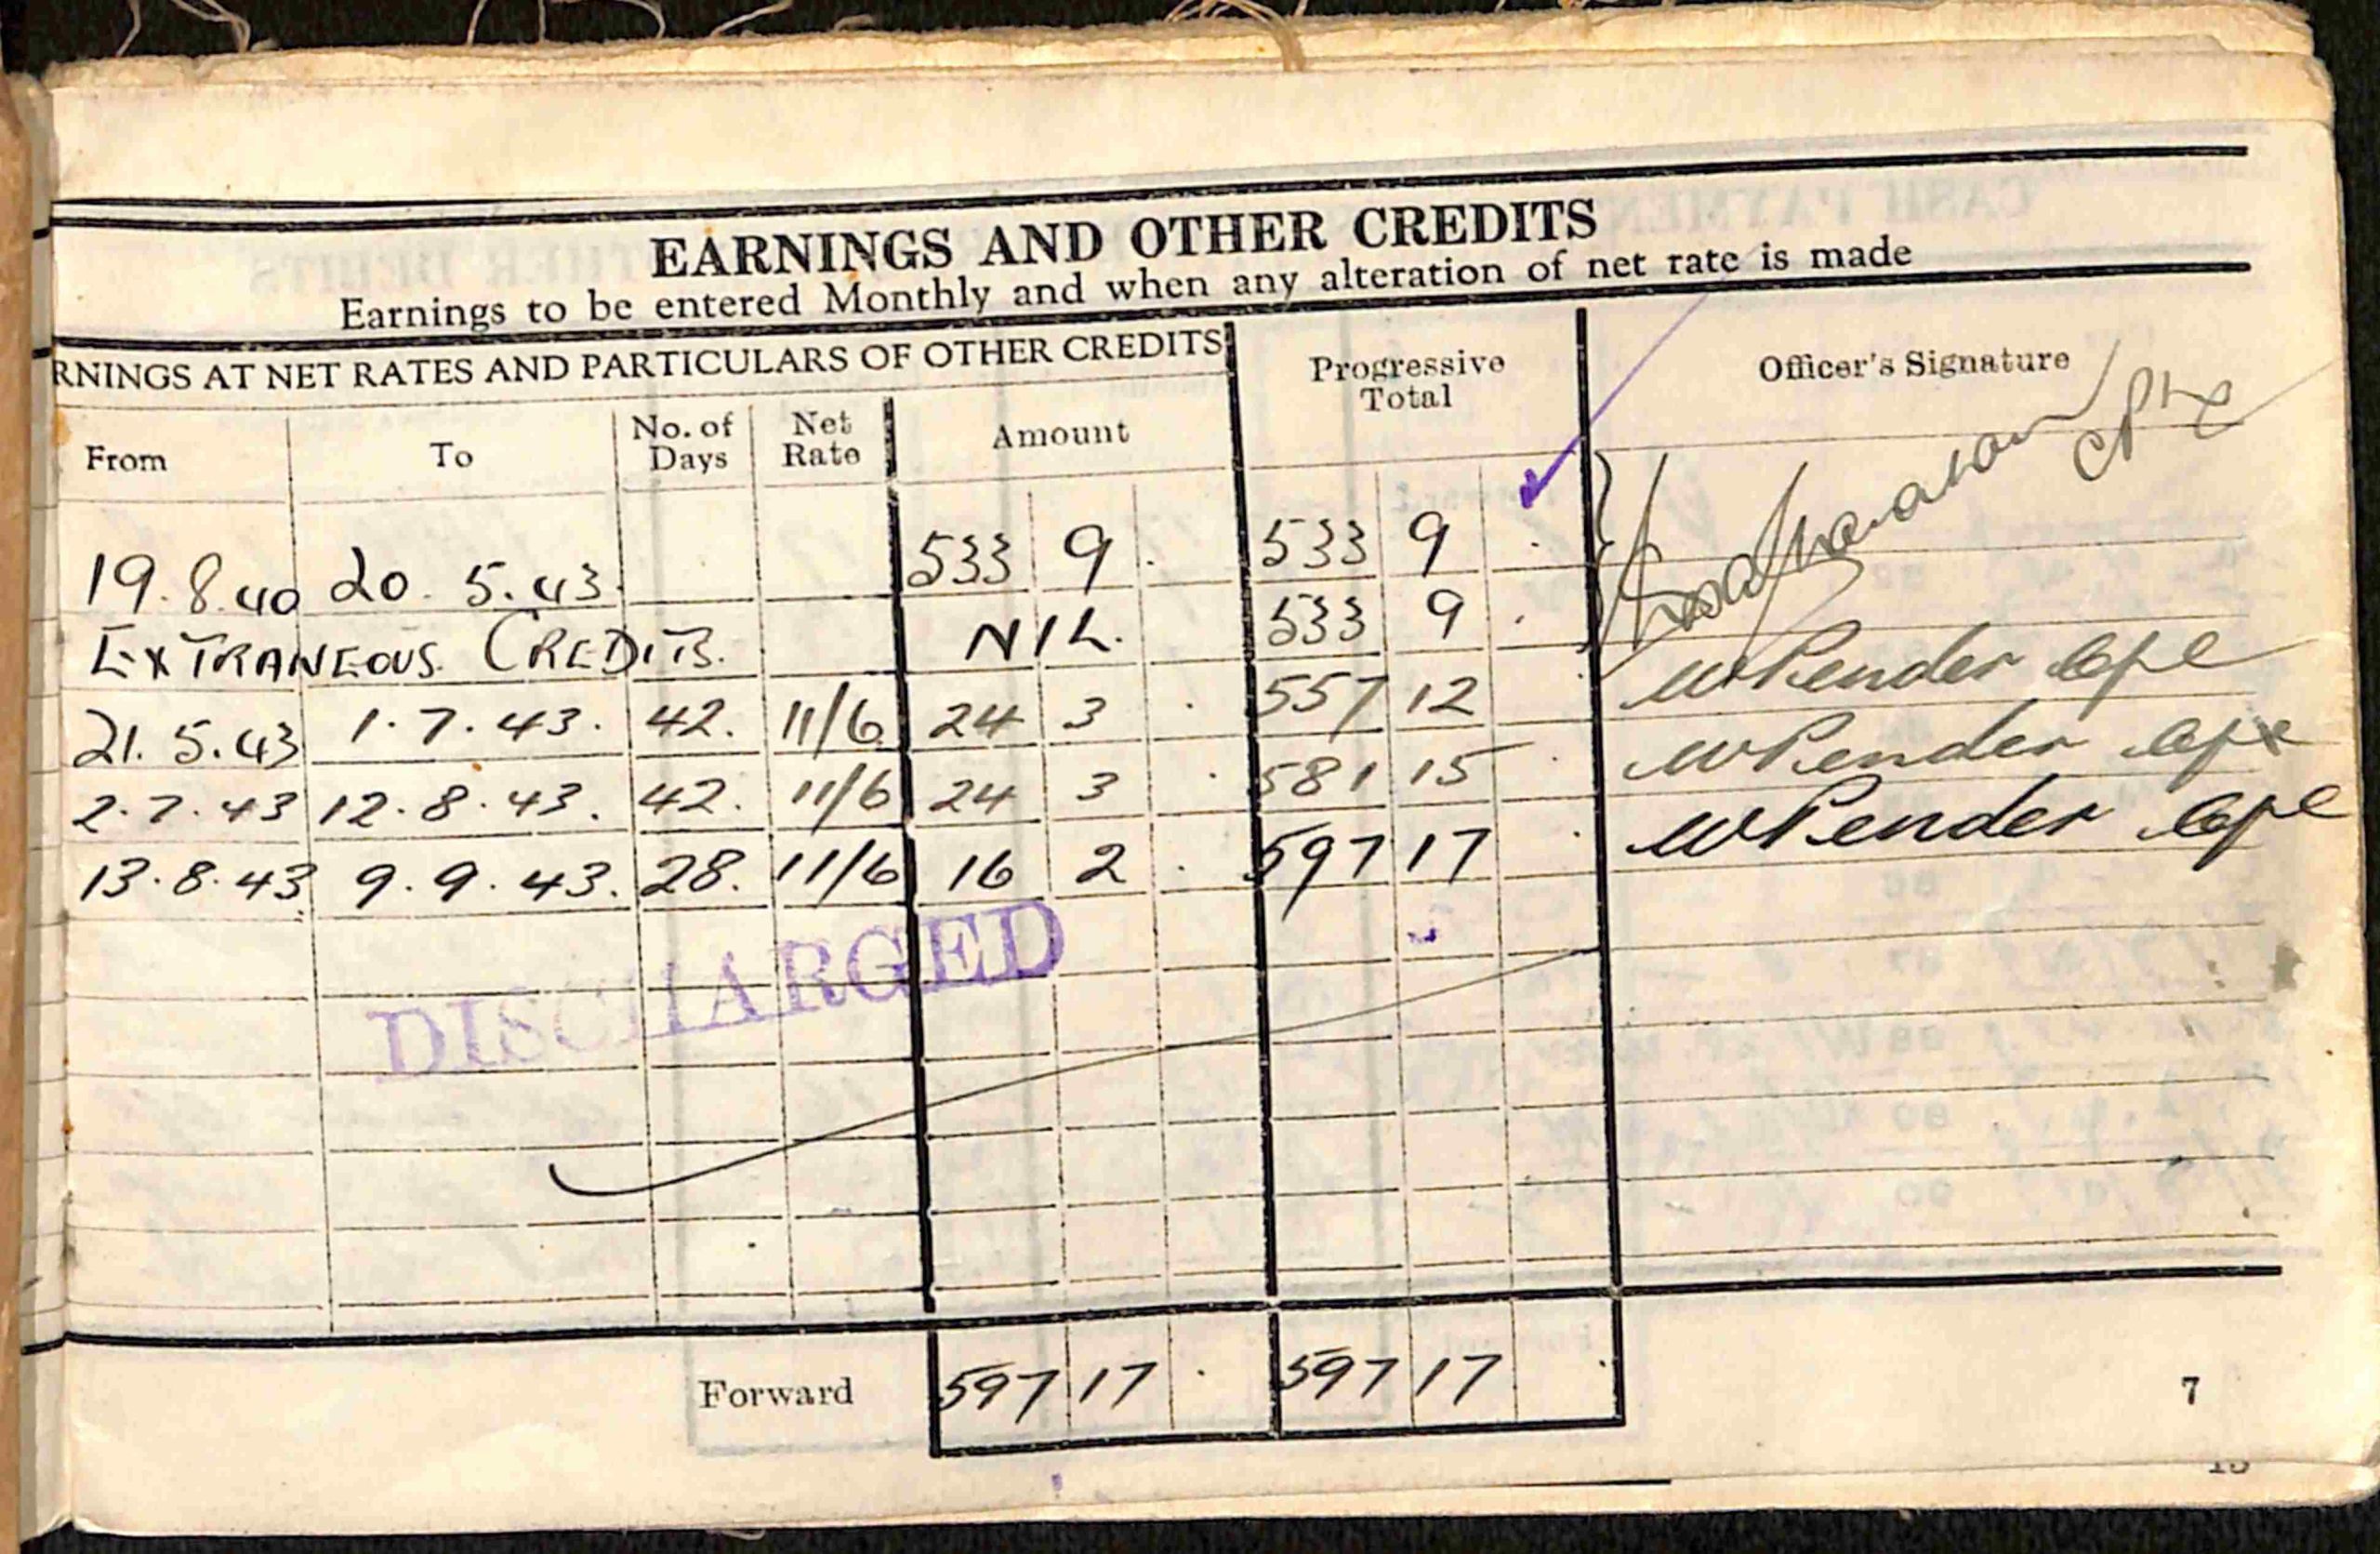 EARNINGS AND OTHER CREDITS
Earnings to be entered Monthly and when any alteration of net rate is made
RNINGS AT NET RATES AND PARTICULARS OF OTHER CREDITS
Progressive Total
Officer's Signature
From To No. of Days Net Rate Amount
19.8.40 20.5.43. 533 9 . 533 9 .
EXTRANEOUS CREDITS. NIL. 533 9 .
21.5.43 1.7.43. 42. 11/6 24 3 . 557 12 . WPender
2.7.43 12.8.43. 42. 11/6 24 3 . 581 15 . WPender
13.8.43 9.9.43. 28. 11/6 16 2 . 597 17 . WPender
DISCHARGED
Forward 597 17 . 597 17 .
7